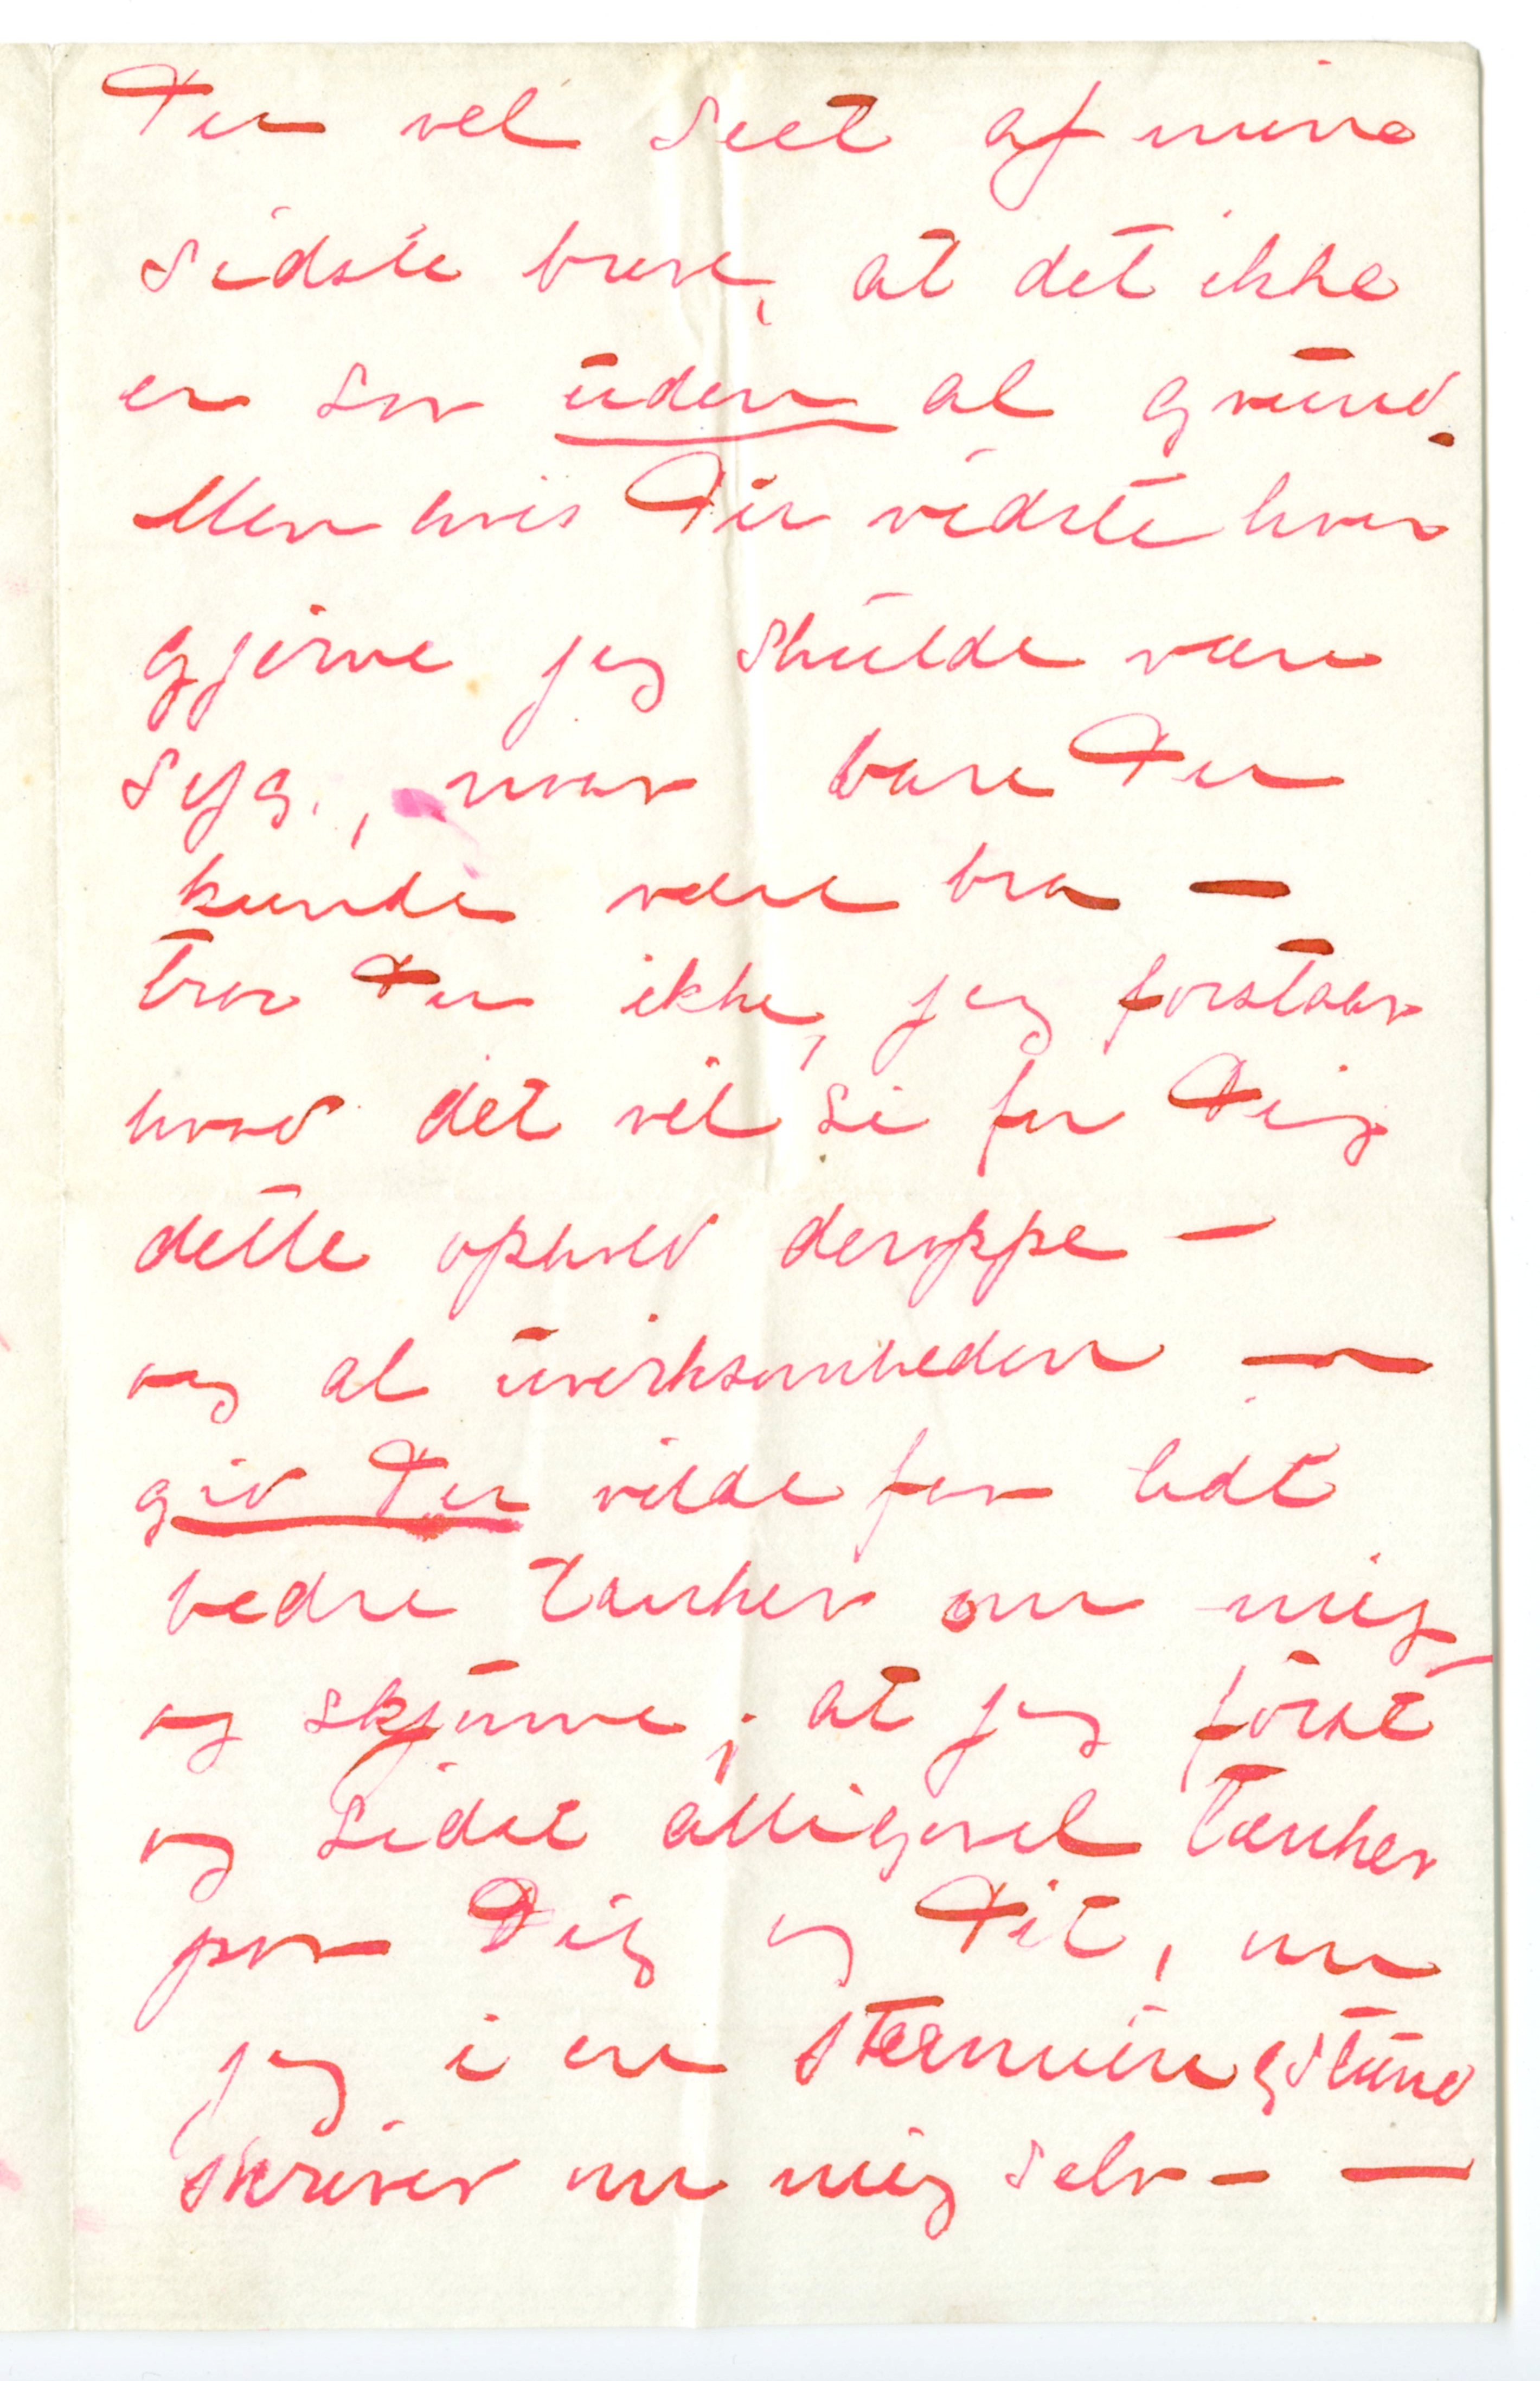 Du vel seet af mine
sidste breve, at det ikke
er saa uden al grund.
Men hvis Du vidste hvor
gjerne jeg skulde være
syg., naar bare Du
kunde være bra –
tror Du ikke, jeg forstaar
hvad det vil si for Dig
dette ophold deroppe –
og al uvirksomheden –
gid Du vilde faa lidt
bedre tanker om mig
og skjønne, at jeg først
og sidst alligevel tænker
paa Dig og Dit, om
jeg i en stemningsstund
skriver om mig selv – –